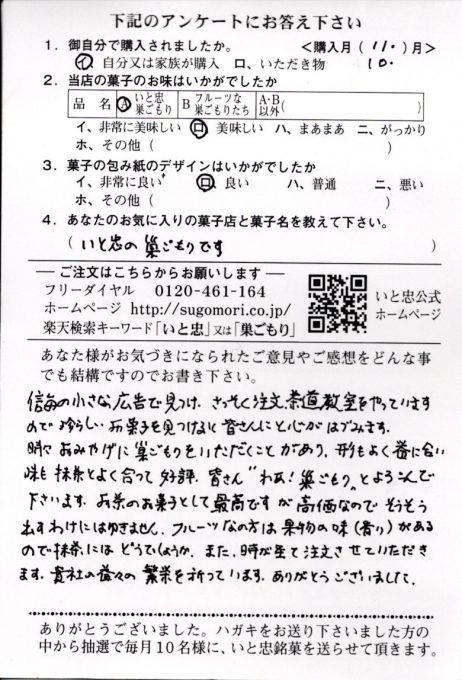 下記のアンケートにお答え下さい
1．御自分で購入されましたか。 ＜購入月（11.）月＞
イ、自分又は家族が購入 ロ、いただき物 10.
2．当店の菓子のお味はいかがでしたか
品 名 A いと忠 巣ごもり B フルーツな 巣ごもりたち A・B 以外（ ）
イ、非常に美味しい ロ、美味しい ハ、まあまあ ニ、がっかり
ホ、その他（ ）
3．菓子の包み紙のデザインはいかがでしたか
イ、非常に良い ロ、良い ハ、普通 ニ、悪い
ホ、その他（ ）
4．あなたのお気に入りの菓子店と菓子名を教えて下さい。
（ いと忠の巣ごもりです ）
ご注文はこちらからお願いします
フリーダイヤル 0120-461-164
ホームページ http://sugomori.co.jp/
楽天検索キーワード「いと忠」又は「巣ごもり」
いと忠公式
ホームページ
あなた様がお気づきになられたご意見やご感想をどんな事
でも結構ですのでお書き下さい。
信毎の小さな広告で見つけ、さっそく注文、茶道教室をやっています
ので珍らしいお菓子を見つけると皆さんにと心がはづみます。
時々おみやげに巣ごもりをいただくことがあり、形もよく番に合い
味も抹茶とよく合って好評、皆さん〝わあ！巣ごもり〟とよろこんで
下さいます。お茶のお菓子として最高ですが高価なのでそうそう
出すわけにはゆきません。フルーツなの方は果物の味（香り）がある
ので抹茶にはどうでしょうか。また、時が来て注文させていただき
ます。貴社の益々の繁栄を祈っています。ありがとうございました。
ありがとうございました。ハガキをお送り下さいました方の
中から抽選で毎月10名様に、いと忠銘菓を送らせて頂きます。